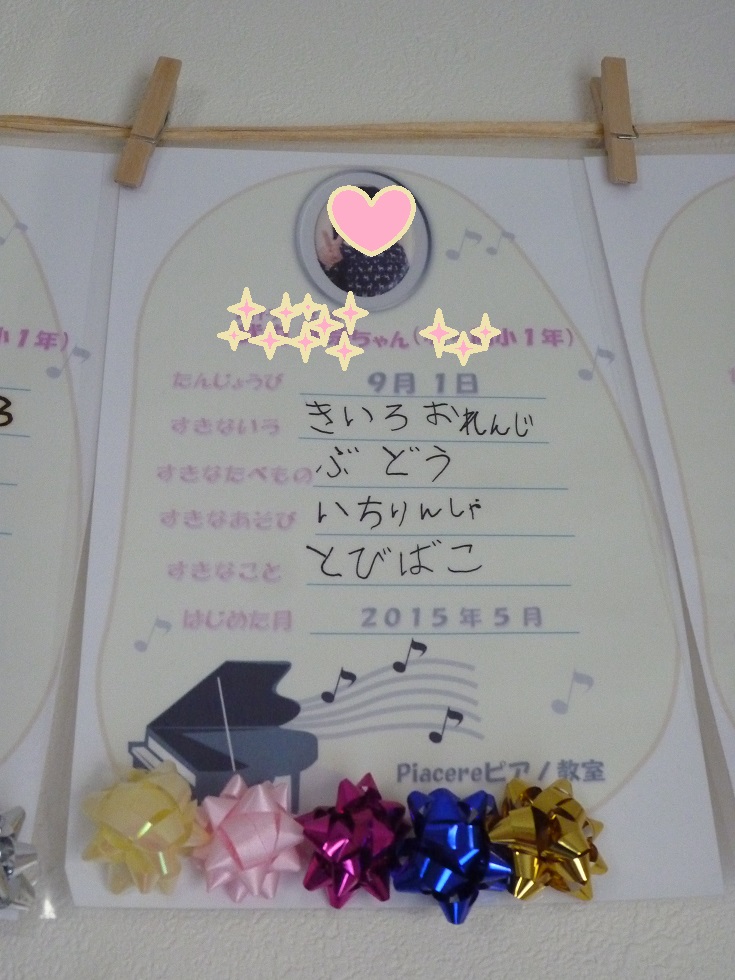 ちゃん(小1年)
たんじょうび 9月1日
すきないろ きいろ おれんじ
すきなたべもの ぶどう
すきなあそび いちりんしゃ
すきなこと とびばこ
はじめた月 2015年5月
Piacereピアノ教室
小1年)
3